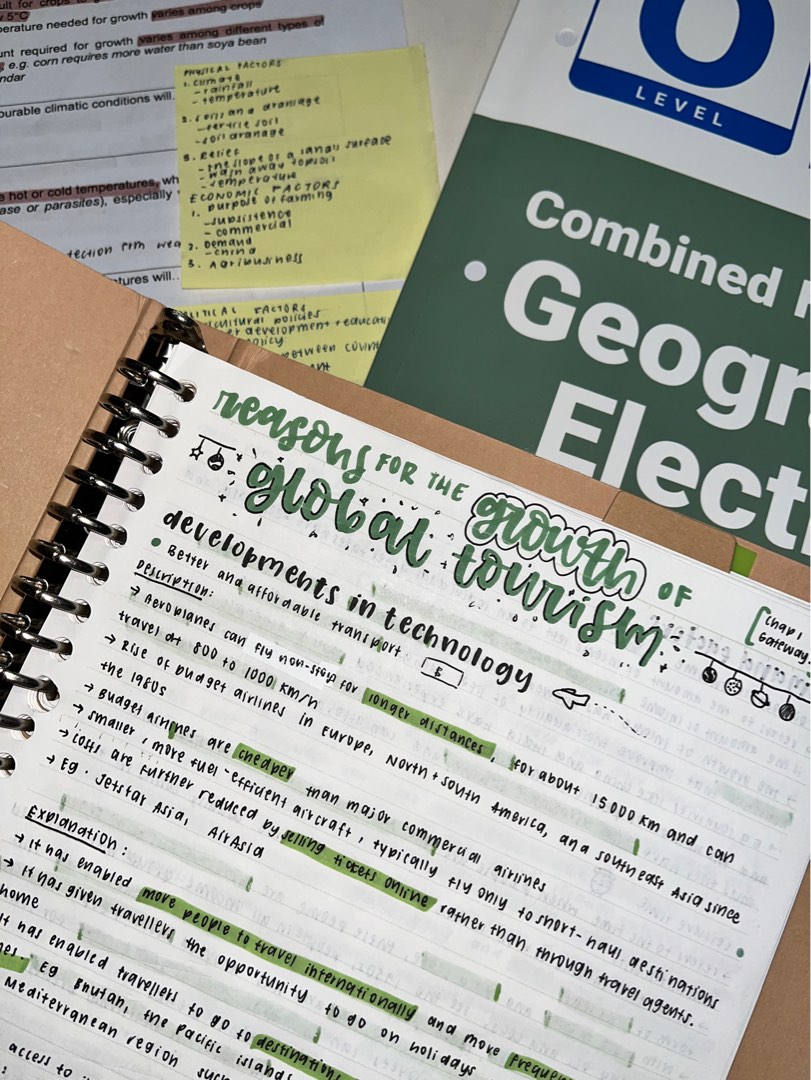 5°C
perature needed for growth varies among crops
unt required for growth varies among different types of
e.g. corn requires more water than soya bean
ndar
ourable climatic conditions will..
hot or cold temperatures, wh
ase or parasites), especially
tection from wea
tures will..
PHYSICAL FACTORS
1. climate
- rainfall
- temperature
2. soils and drainage
- fertile soil
- soil drainage
3. Relief
- the slope of a land's surface
- wash away topsoil
- temperature
ECONOMIC FACTORS
1. purpose of farming
- subsistence
- commercial
2. Demand
- china
3. Agribusiness
ITICAL FACTORS
cultural policies
er development + educati
policy
between count
O
LEVEL
Combined
Geogr
Elect
reasons FOR THE growth OF
global tourism
[Chap 1
Gateway
developments in technology
• Better and affordable transport
Description:
→ Aeroplanes can fly non-stop for longer distances, for about 15 000 km and can
travel at 800 to 1000 km/h
→ Rise of budget airlines in Europe, North + South America, and southeast Asia since
the 1980s
→ Budget airlines are cheaper than major commercial airlines
→ smaller, more fuel-efficient aircraft, typically fly only to short-haul destinations
→ costs are further reduced by selling tickets online rather than through travel agents.
→ Eg. Jetstar Asia, AirAsia
Explanation:
→ It has enabled more people to travel internationally and more frequen
→ It has given travellers the opportunity to go on holidays
home
It has enabled travellers to go to destinations
nes. Eg Bhutan, the Pacific islands
Mediterranean region such
access to i